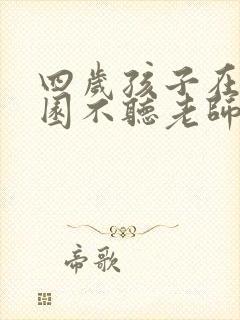 四歲孩子在
園不聽老師
帝歌